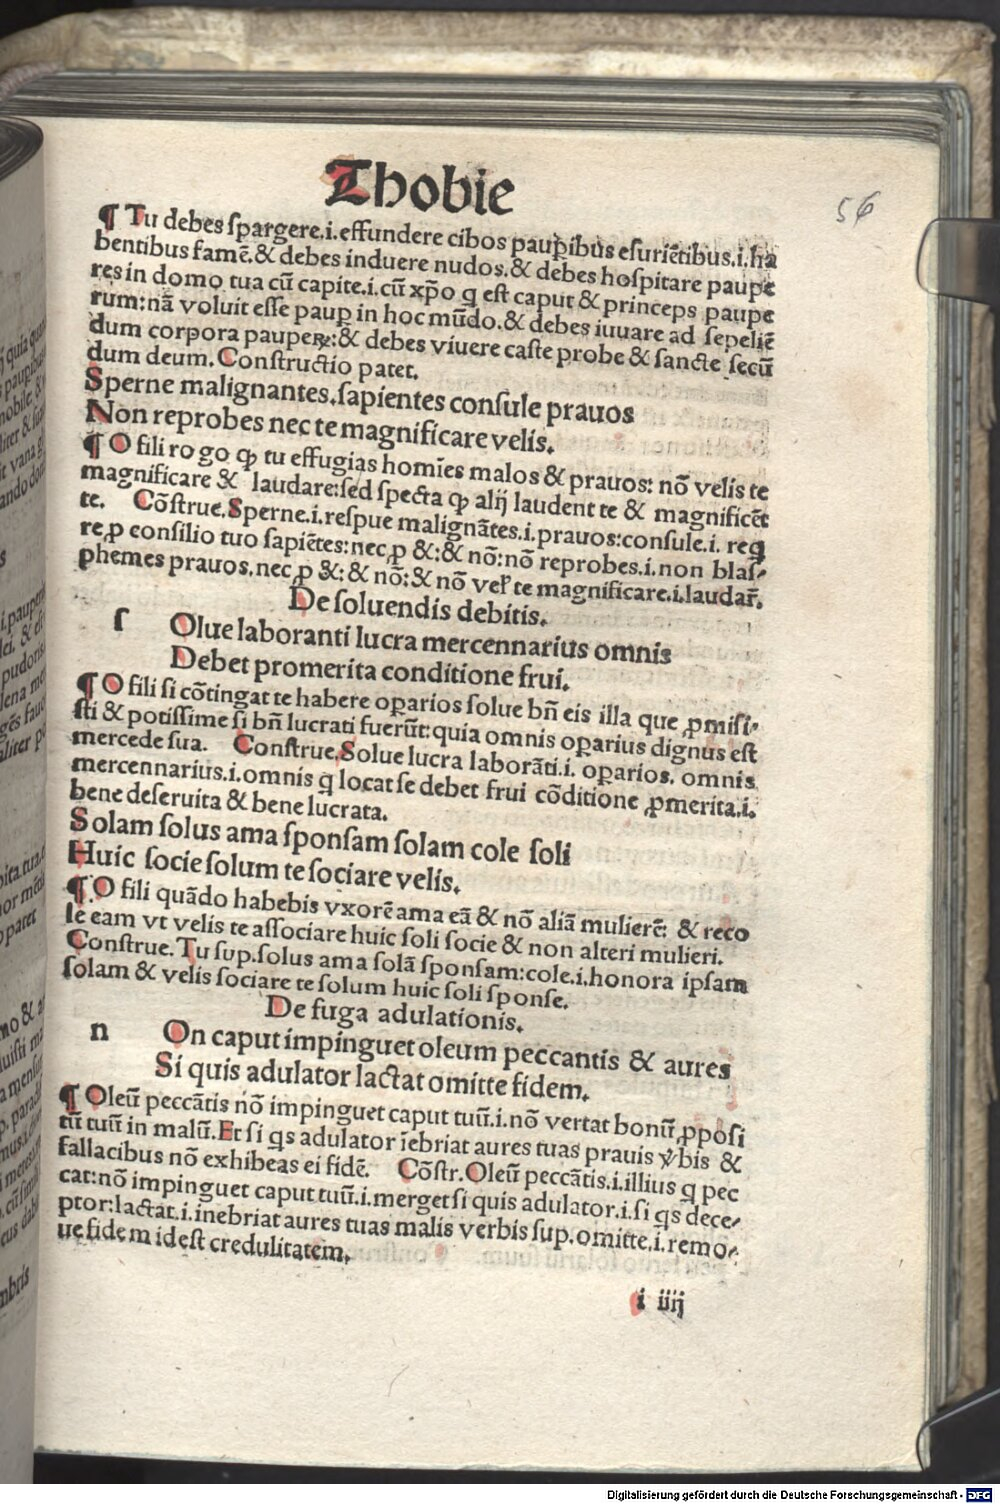 Thobie
56
¶ Tu debes ſpargere.i.effundere cibos paup̲ibus eſuriētibus.i.ha
bentibus famē.& debes induere nudos.& debes hoſpitare paupe
res in domo tua cū capite.i.cū xp̄o q̄ eſt caput & princeps paupe
rum:nā voluit eſſe paup̲ in hoc mūdo.& debes iuuare ad ſepeliē
dum corpora pauperꝝ:& debes viuere caſte probe & ſancte ſecū
dum deum. Conſtructio patet.
Sperne malignantes.ſapientes conſule prauos
Non reprobes nec te magnificare velis.
¶ O fili rogo ꝙ tu effugias homīes malos & prauos: nō velis te
magnificare & laudare:ſed ſpecta ꝙ alij laudent te & magnificēt
te. Cōſtrue.Sperne.i.reſpue malignātes.i.prauos:conſule.i. req̄
re,p conſilio tuo ſapiētes:nec,p &:& nō:nō reprobes.i.non blaſ⸗
phemes prauos.nec,p &: & nō:& nō vel̄ te magnificare.i.laudar̄.
De ſoluendis debitis.
ſ Olue laboranti lucra mercennarius omnis
Debet promerita conditione frui.
¶ O fili ſi cōtingat te habere oꝑarios ſolue bn̄ eis illa que ꝓmiſi⸗
ſti & potiſſime ſi bn̄ lucrati fuerūt:quia omnis oꝑarius dignus eſt
mercede ſua. Conſtrue.Solue lucra laborāti.i. oꝑarios. omnis
mercennarius.i.omnis q̄ locat ſe debet frui cōditione ꝓmerita.i.
bene deſeruita & bene lucrata.
Solam ſolus ama ſponſam ſolam cole ſoli
Huic ſocie ſolum te ſociare velis.
¶ .O fili quādo habebis vxorē ama eā & nō aliā mulierē: & reco
le eam vt velis te aſſociare huic ſoli ſocie & non alteri mulieri.
Conſtrue.Tu ſup.ſolus ama ſolā ſponſam:cole.i.honora ipſam
ſolam & velis ſociare te ſolum huic ſoli ſponſe.
De fuga adulationis.
n On caput impinguet oleum peccantis & aures
Si quis adulator lactat omitte fidem.
¶ Oleū peccātis nō impinguet caput tuū.i.nō vertat bonū ꝓpoſi
tū tuū in malū.Et ſi q̄s adulator īebriat aures tuas prauis v̄bis &
fallacibus nō exhibeas ei fidē. Cōſtr.Oleū peccātis.i.illius q̄ pec
cat:nō impinguet caput tuū.i.merget ſi quis adulator.i.ſi q̄s dece⸗
ptor:lactat.i.inebriat aures tuas malis verbis ſup.omitte.i.remo⸗
ue fidem id eſt credulitatem.
i iiij
Digitalisierung gefördert durch die Deutsche Forschungsgemeinschaft - DFG